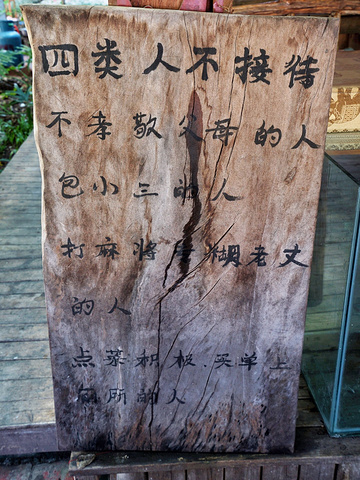 四类人不接待
不孝敬父母的人
包小三的人
打麻将后糊老丈
的人
点菜积极、买单上
厕所的人